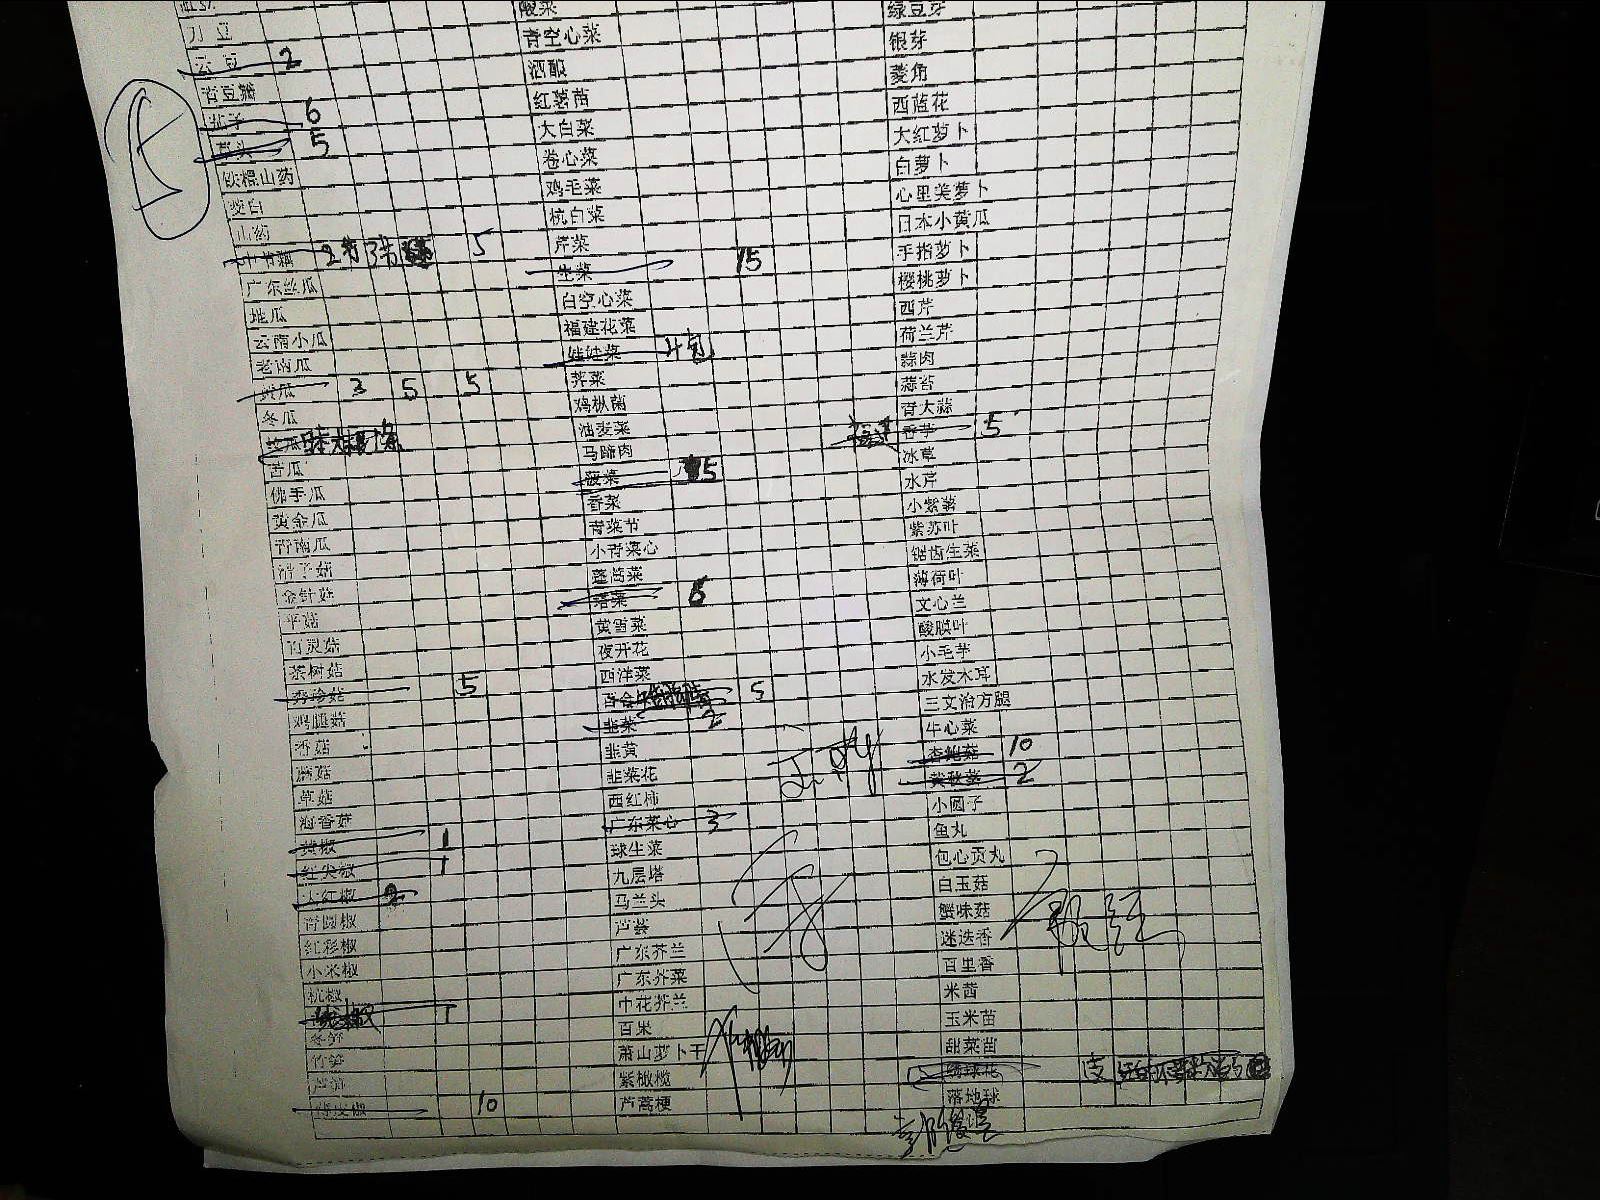 刀豆
云豆 2
青豆瓣
茄子 6
草头 5
铁棍山药
茭白
山药
2节 3节 5
广东丝瓜
地瓜
云南小瓜
老南瓜
黄瓜 3 5 5
冬瓜
苦瓜
佛手瓜
黄金瓜
青南瓜
滑子菇
金针菇
平菇
百灵菇
茶树菇
秀珍菇 5
鸡腿菇
香菇
蘑菇
草菇
海香菇
黄椒 1
红尖椒 1
大红椒 2
青圆椒
红彩椒
小米椒
杭椒
线椒 1
冬笋
竹笋
芦笋
青皮椒 10
酸菜
青空心菜
酒酿
红薯苗
大白菜
卷心菜
鸡毛菜
杭白菜
芹菜
生菜 15
白空心菜
福建花菜
娃娃菜 4包
荠菜
鸡枞菌
油麦菜
马蹄肉
菠菜 15
香菜
青菜节
小青菜心
蓬蒿菜
塔菜 6
黄雪菜
夜开花
西洋菜
百合 5
韭菜 2
韭黄
韭菜花
西红柿
广东菜心 3
球生菜
九层塔
马兰头
芦荟
广东芥兰
广东芥菜
中花芥兰
百果
萧山萝卜干
紫橄榄
芦蒿梗
绿豆芽
银芽
菱角
西蓝花
大红萝卜
白萝卜
心里美萝卜
日本小黄瓜
手指萝卜
樱桃萝卜
西芹
荷兰芹
蒜肉
蒜苔
青大蒜
香芋 5
冰草
水芹
小紫薯
紫苏叶
锯齿生菜
薄荷叶
文心兰
酸膜叶
小毛芋
水发木耳
三文治方腿
牛心菜
杏鲍菇 10
黄秋葵 2
小圆子
鱼丸
包心贡丸
白玉菇
蟹味菇
迷迭香
百里香
米茜
玉米苗
甜菜苗
绣球花
落地球